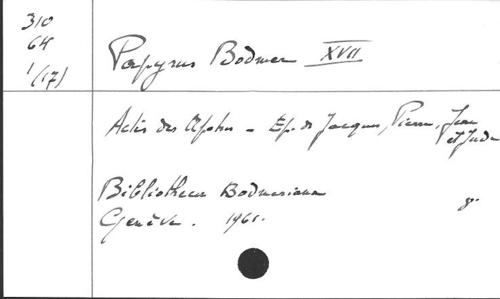 310
64
1/(17)
Papyrus Bodmer XVII
Actes des Apôtres - Ep. de Jacques, Pierre, Jean
et Jude
Bibliotheca Bodmeriana
Genève. 1961. 8°